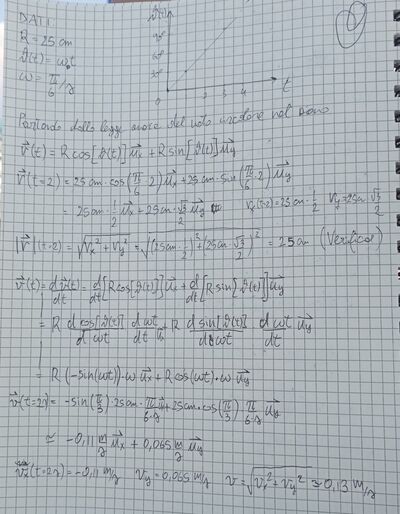 DATI:
R = 25 cm
ϑ(t) = ω₀t
ω = π/6 /s
ϑ(t)
90°
60°
30°
0 1 2 3 t
Partendo dalla legge oraria del moto circolare nel piano
r⃗(t) = R cos[ϑ(t)] u⃗x + R sin[ϑ(t)] u⃗y
r⃗(t=2) = 25cm · cos(π/6 · 2) u⃗x + 25cm · sin(π/6 · 2) u⃗y
= 25cm · 1/2 u⃗x + 25cm · √3/2 u⃗y Vx(t=2) = 25cm · 1/2 Vy = 25cm √3/2
|r⃗|(t=2) = √(Vx² + Vy²) = √((25cm · 1/2)² + (25cm √3/2)²) = 25cm (Verifica)
v⃗(t) = dr⃗(t)/dt = d/dt [R cos[ϑ(t)]] u⃗x + d/dt [R sin[ϑ(t)]] u⃗y
= R d cos[ϑ(t)]/dωt dωt/dt u⃗x + R d sin[ϑ(t)]/dωt dωt/dt u⃗y
= R (-sin(ωt)) · ω u⃗x + R cos(ωt) · ω u⃗y
v⃗(t=2s) = -sin(π/3) · 25cm · π/6·s u⃗x + 25cm · cos(π/3) π/6·s u⃗y
≅ -0,11 m/s u⃗x + 0,065 m/s u⃗y
Vx(t=2s) = -0,11 m/s Vy = 0,065 m/s V = √(Vx² + Vy²) ≅ 0,13 m/s